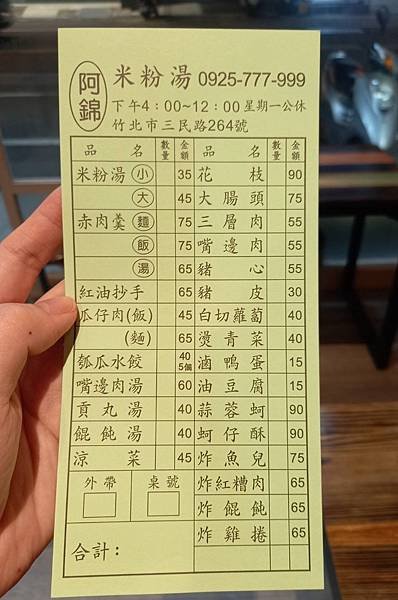 阿錦 米粉湯 0925-777-999
下午4：00~12：00 星期一公休
竹北市三民路264號
品 名 數量 金額 品 名 數量 金額
米粉湯 小 35 花 枝 90
大 45 大腸頭 75
赤肉羹 麵 75 三層肉 55
飯 75 嘴邊肉 55
湯 65 豬 心 55
紅油抄手 65 豬 皮 30
瓜仔肉(飯) 45 白切蘿蔔 40
(麵) 65 燙青菜 40
瓠瓜水餃 40 5個 滷鴨蛋 15
嘴邊肉湯 60 油豆腐 15
貢丸湯 40 蒜蓉蚵 90
餛飩湯 40 蚵仔酥 90
涼 菜 45 炸魚兒 75
外帶 桌號 炸紅糟肉 65
炸餛飩 65
合計： 炸雞捲 65